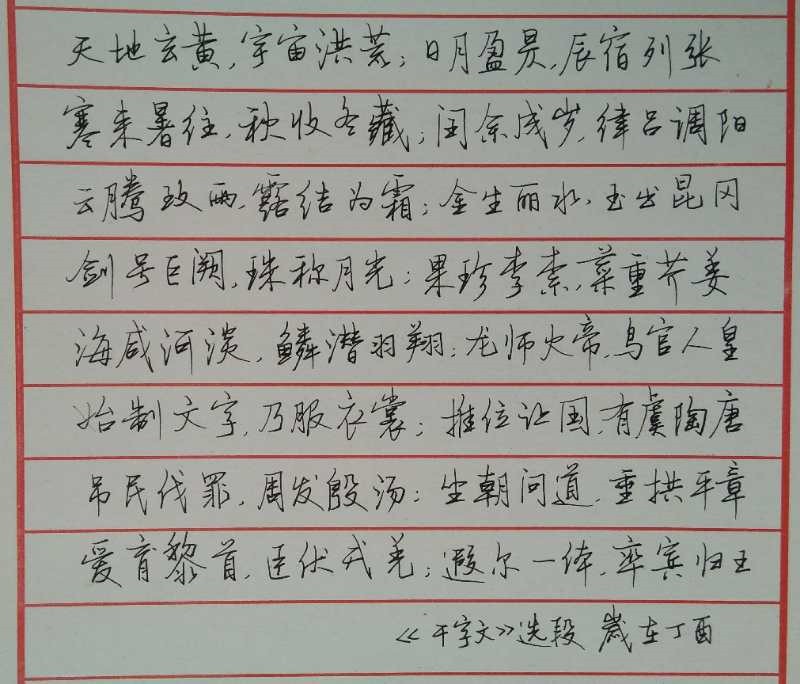 天地玄黄，宇宙洪荒；日月盈昃，辰宿列张
寒来暑往，秋收冬藏；闰余成岁，律吕调阳
云腾致雨，露结为霜；金生丽水，玉出昆冈
剑号巨阙，珠称月光；果珍李柰，菜重芥姜
海咸河淡，鳞潜羽翔；龙师火帝，鸟官人皇
始制文字，乃服衣裳；推位让国，有虞陶唐
吊民伐罪，周发殷汤；坐朝问道，垂拱平章
爱育黎首，臣伏戎羌；遐尔一体，率宾归王
《千字文》选段 歲在丁酉